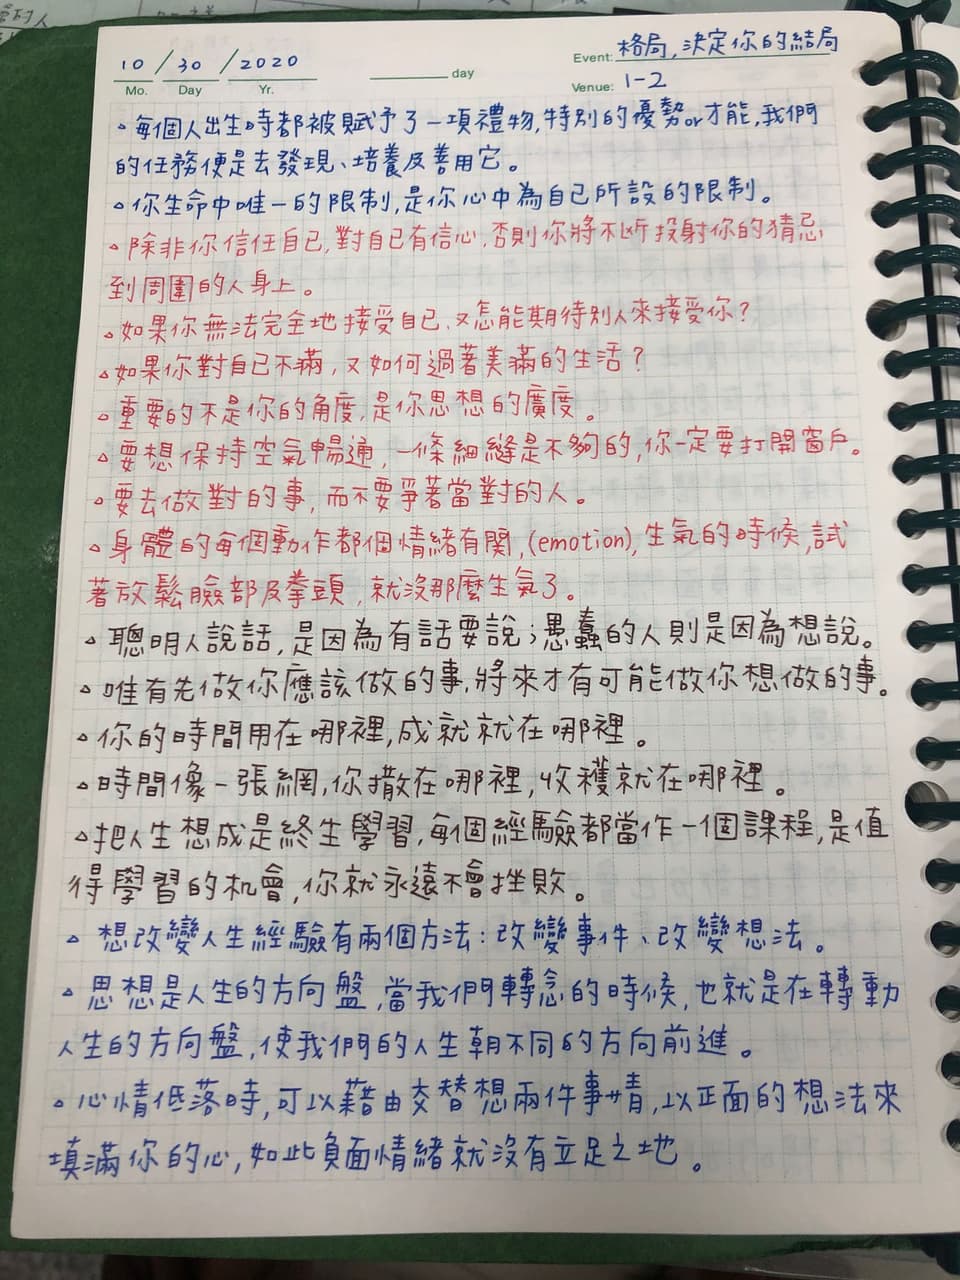 10 / 30 / 2020
Mo. Day Yr.
day
Event: 格局,決定你的結局
Venue: 1-2
▵每個人出生時都被賦予了一項禮物,特別的優勢or才能,我們
的任務便是去發現、培養及善用它。
▵你生命中唯一的限制,是你心中為自己所設的限制。
▵除非你信任自己,對自己有信心,否則你將不斷投射你的猜忌
到周圍的人身上。
▵如果你無法完全地接受自己,又怎能期待別人來接受你?
▵如果你對自己不滿,又如何過著美滿的生活?
▵重要的不是你的角度,是你思想的廣度。
▵要想保持空氣暢通,一條細縫是不夠的,你一定要打開窗戶。
▵要去做對的事,而不要爭著當對的人。
▵身體的每個動作都個情緒有関,(emotion),生氣的時候,試
著放鬆臉部及拳頭,就沒那麼生氣了。
▵聰明人說話,是因為有話要說;愚蠢的人則是因為想說。
▵唯有先做你應該做的事,將來才有可能做你想做的事。
▵你的時間用在哪裡,成就就在哪裡。
▵時間像一張網,你撒在哪裡,收穫就在哪裡。
▵把人生想成是終生學習,每個經驗都當作一個課程,是值
得學習的机會,你就永遠不會挫敗。
▵想改變人生經驗有兩個方法:改變事件、改變想法。
▵思想是人生的方向盤,當我們轉念的時候,也就是在轉動
人生的方向盤,使我們的人生朝不同的方向前進。
▵心情低落時,可以藉由交替想兩件事情,以正面的想法來
填滿你的心,如此負面情緒就沒有立足之地。